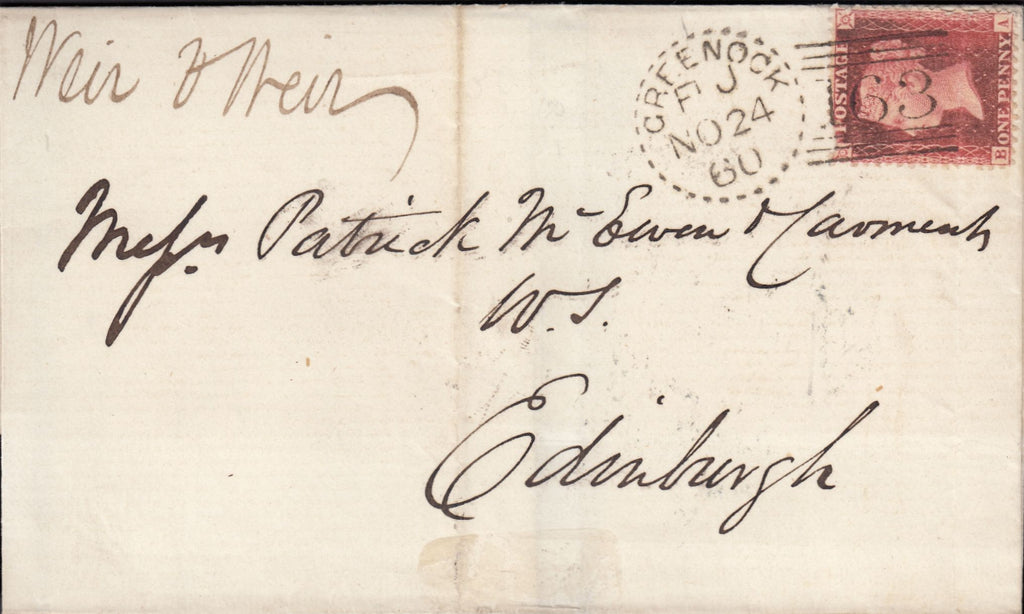 Weir & Weir
GREENOCK
J
E
NO 24
60
63
POSTAGE
ONE PENNY
A
B
Messrs Patrick McEwen & Carments
W.S.
Edinburgh